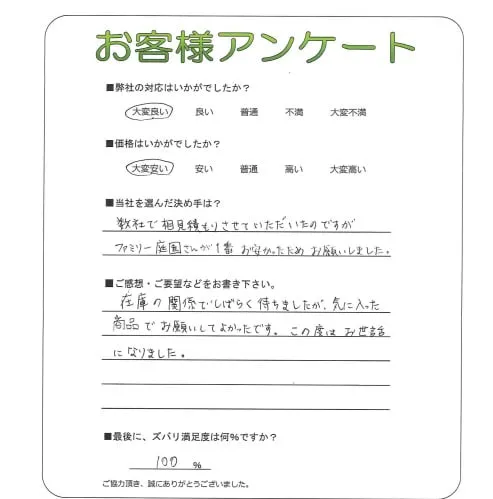 お客様アンケート
■弊社の対応はいかがでしたか?
大変良い 良い 普通 不満 大変不満
■価格はいかがでしたか?
大変安い 安い 普通 高い 大変高い
■当社を選んだ決め手は?
数社で相見積もりさせていただいたのですが
ファミリー庭園さんが1番 お安かったため お願いしました。
■ご感想・ご要望などをお書き下さい。
在庫の関係でしばらく待ちましたが、気に入った
商品でお願いしてよかったです。この度はお世話
になりました。
■最後に、ズバリ満足度は何%ですか?
100 %
ご協力頂き、誠にありがとうございました。